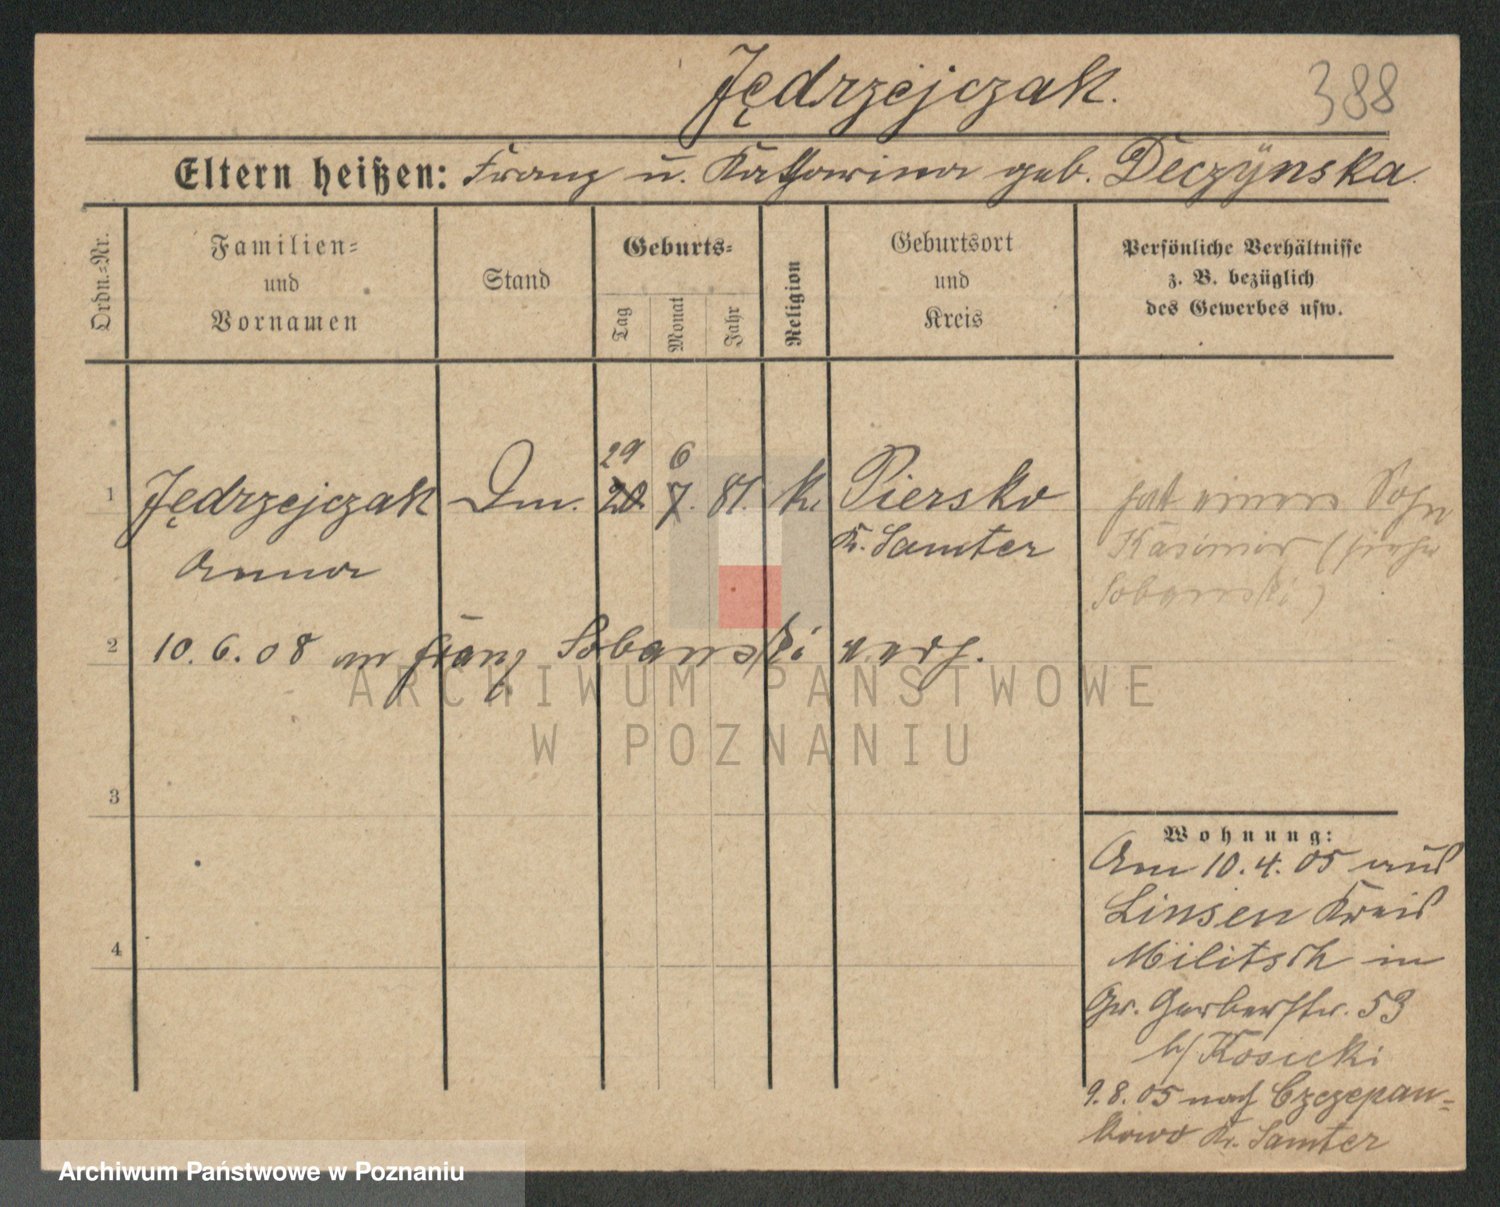 Jędrzejczak.
388
Eltern heißen: Franz u. Katharina geb. Deczynska.
Ordn.-Nr.
Familien-
und
Vornamen
Stand
Geburts-
Tag
Monat
Jahr
Religion
Geburtsort
und
Kreis
Persönliche Verhältnisse
z. B. bezüglich
des Gewerbes usw.
29 6
1 Jędrzejczak Dm. 20 7. 81. k. Piersko
Kr. Samter
Anna
hat einen Sohn
Kasimir (siehe
Sobanski)
2 10.6.08 an Franz Sobanski verh.
ARCHIWUM PAŃSTWOWE
W POZNANIU
3
4
Wohnung:
Am 10.4.05 aus
Linsen Kreis
Militsch in
Gr. Gerberstr. 53
b/ Kosicki
9.8.05 nach Czczepan-
kowo Kr. Samter
Archiwum Państwowe w Poznaniu